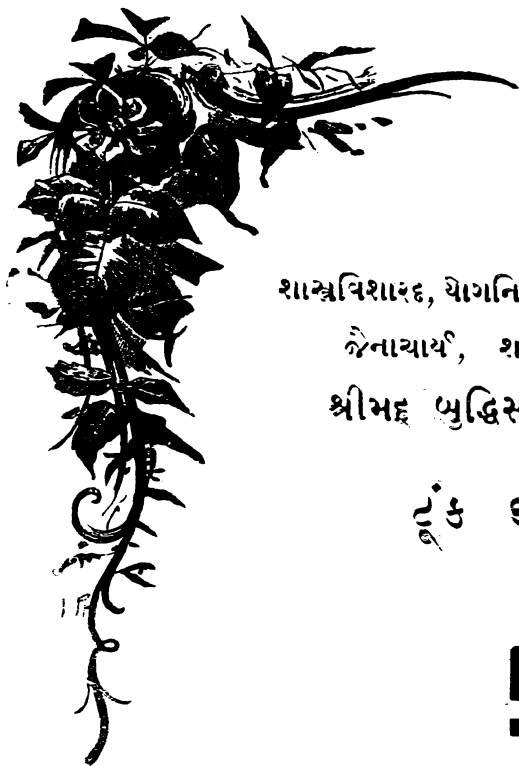 શાસ્ત્રવિશારદ, યોગનિ
જૈનાચાર્ય, શ
શ્રીમદ્ બુદ્ધિસ
ટૂંક